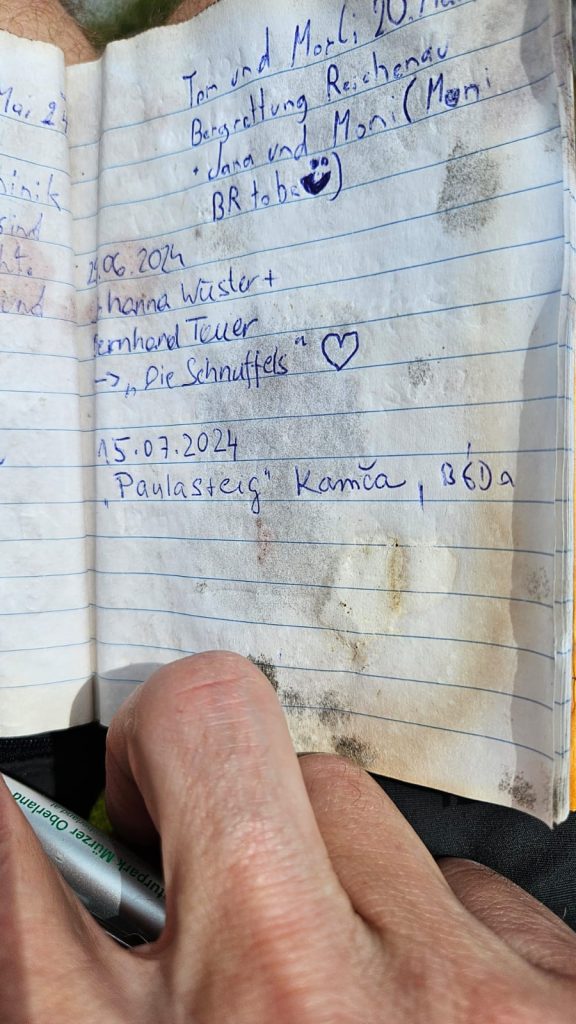 Mai 24
Tom und Morli 20. Mai
Bergrettung Reichenau
+ Jana und Moni (Moni
BR to be )
.06.2024
hanna Wüster +
ernhard Teuer
→ „Die Schnuffels“ ♡
15.07.2024
„Paulasteig“ Kamča, BÉĎa
turpark Mürzer Oberland